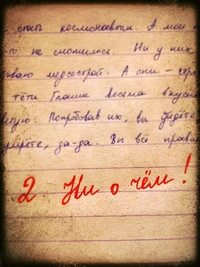 стать космонавтом. А мои
не смотились. Ни у них
медсестрой. А они -
тёти Глаши весьма вкусн
Попробовав их, вы
умрёте, да-да. Вы всё прав
2 Ни о чём!